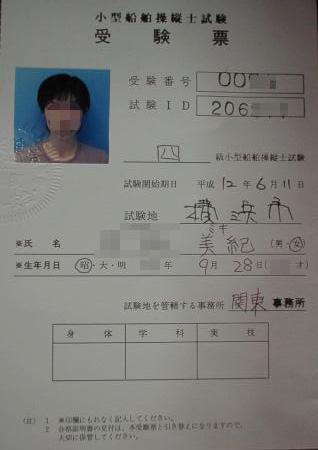 小型船舶操縦士試験
受験票
受験番号 00
試験ID 206
四 級小型船舶操縦士試験
試験開始期日 平成12年6月11日
試験地 横浜市
ミキ
※氏名 美紀 (男・女)
※生年月日 昭・大・明 年9月28日( 才)
試験地を管轄する事務所 関東 事務所
身体 学科 実技
(注) 1 ※印欄にもれなく記入してください。
2 合格証明書の交付は、本受験票と引き替えになりますので、
大切に保管してください。